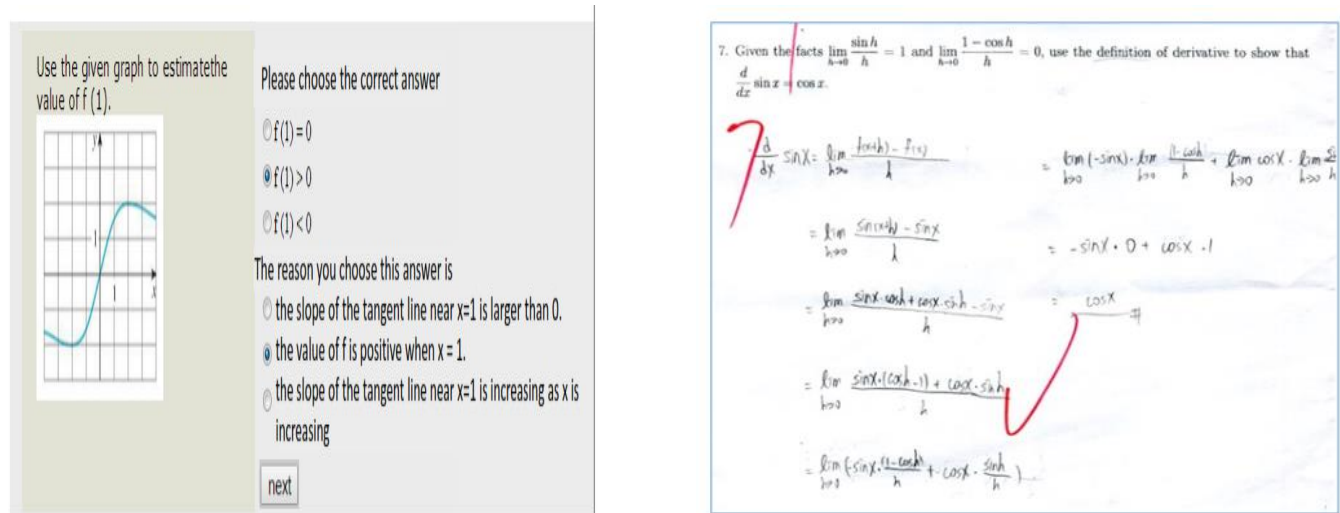 Use the given graph to estimatethe
value of f (1).
y
1
1
x
Please choose the correct answer
f(1) = 0
f(1) > 0
f(1) < 0
The reason you choose this answer is
the slope of the tangent line near x=1 is larger than 0.
the value of f is positive when x = 1.
the slope of the tangent line near x=1 is increasing as x is
increasing
next
7. Given the facts lim h→0 sin h / h = 1 and lim h→0 1 − cos h / h = 0, use the definition of derivative to show that
d/dx sin x = cos x.
d/dx sinx = lim h→0 f(x+h) - f(x) / h
= lim h→0 sin(x+h) - sinx / h
= lim h→0 sinx·cosh + cosx·sinh - sinx / h
= lim h→0 sinx·(cosh-1) + cosx·sinh / h
= lim h→0 (-sinx·(1-cosh) / h + cosx·sinh / h)
= lim h→0 (-sinx)· lim h→0 (1-cosh) / h + lim h→0 cosx · lim h→0 / h
= -sinx · 0 + cosx · 1
= cosx #